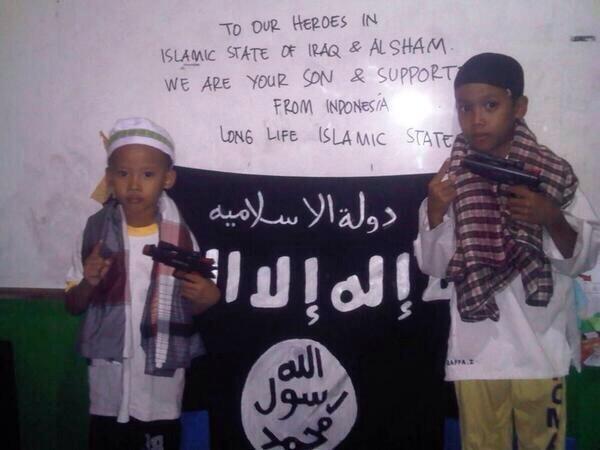 TO OUR HEROES IN
ISLAMIC STATE OF IRAQ & ALSHAM.
WE ARE YOUR SON & SUPPORT
FROM INDONESIA
LONG LIFE ISLAMIC STATE
دولة الاسلاميه
لا إله إلا الله
الله
رسول
محمد